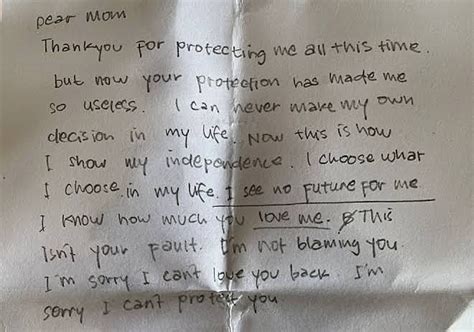 Dear Mom
Thankyou for protecting me all this time.
but now your protection has made me
so useless. I can never make my own
decision in my life. Now this is how
I show my independence. I choose what
I choose in my life. I see no future for me
I know how much you love me. This
Isn't your fault. I'm not blaming you.
I'm sorry I can't love you back. I'm
sorry I can't protect you